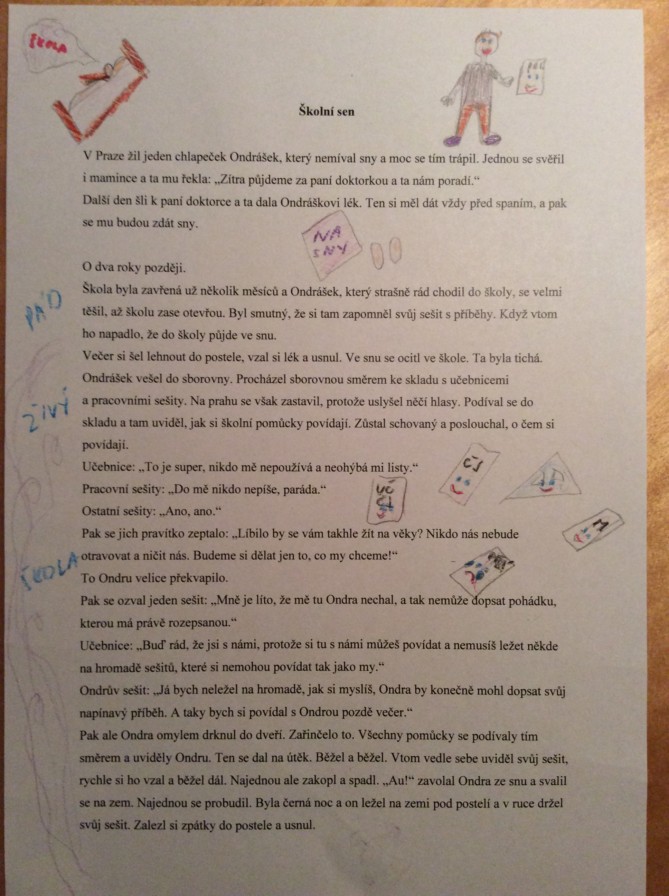 ŠKOLA
Školní sen
V Praze žil jeden chlapeček Ondrášek, který nemíval sny a moc se tím trápil. Jednou se svěřil
i mamince a ta mu řekla: „Zítra půjdeme za paní doktorkou a ta nám poradí.“
Další den šli k paní doktorce a ta dala Ondráškovi lék. Ten si měl dát vždy před spaním, a pak
se mu budou zdát sny.
NA
SNY
O dva roky později.
Škola byla zavřená už několik měsíců a Ondrášek, který strašně rád chodil do školy, se velmi
těšil, až školu zase otevřou. Byl smutný, že si tam zapomněl svůj sešit s příběhy. Když vtom
ho napadlo, že do školy půjde ve snu.
PÁD
Večer si šel lehnout do postele, vzal si lék a usnul. Ve snu se ocitl ve škole. Ta byla tichá.
Ondrášek vešel do sborovny. Procházel sborovnou směrem ke skladu s učebnicemi
a pracovními sešity. Na prahu se však zastavil, protože uslyšel něčí hlasy. Podíval se do
skladu a tam uviděl, jak si školní pomůcky povídají. Zůstal schovaný a poslouchal, o čem si
povídají.
ŽIVÝ
Učebnice: „To je super, nikdo mě nepoužívá a neohýbá mi listy.“
ČJ
Pracovní sešity: „Do mě nikdo nepíše, paráda.“
Ostatní sešity: „Ano, ano.“
Pak se jich pravítko zeptalo: „Líbilo by se vám takhle žít na věky? Nikdo nás nebude
otravovat a ničit nás. Budeme si dělat jen to, co my chceme!“
M
ŠKOLA
To Ondru velice překvapilo.
Pak se ozval jeden sešit: „Mně je líto, že mě tu Ondra nechal, a tak nemůže dopsat pohádku,
kterou má právě rozepsanou.“
Učebnice: „Buď rád, že jsi s námi, protože si tu s námi můžeš povídat a nemusíš ležet někde
na hromadě sešitů, které si nemohou povídat tak jako my.“
Ondrův sešit: „Já bych neležel na hromadě, jak si myslíš, Ondra by konečně mohl dopsat svůj
napínavý příběh. A taky bych si povídal s Ondrou pozdě večer.“
Pak ale Ondra omylem drknul do dveří. Zařinčelo to. Všechny pomůcky se podívaly tím
směrem a uviděly Ondru. Ten se dal na útěk. Běžel a běžel. Vtom vedle sebe uviděl svůj sešit,
rychle si ho vzal a běžel dál. Najednou ale zakopl a spadl. „Au!“ zavolal Ondra ze snu a svalil
se na zem. Najednou se probudil. Byla černá noc a on ležel na zemi pod postelí a v ruce držel
svůj sešit. Zalezl si zpátky do postele a usnul.